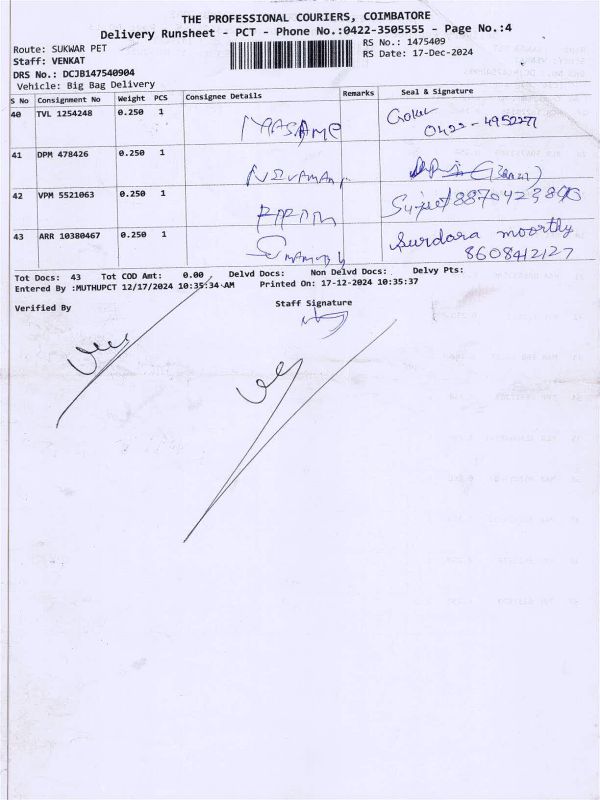 THE PROFESSIONAL COURIERS, COIMBATORE
Delivery Runsheet - PCT - Phone No.:0422-3505555 - Page No.:4
Route: SUKWAR PET
RS No.: 1475409
Staff: VENKAT
RS Date: 17-Dec-2024
DRS No.: DCJB147540904
Vehicle: Big Bag Delivery
S No Consignment No Weight PCS Consignee Details Remarks Seal & Signature
40 TVL 1254248 0.250 1 Gokul
0422-4952271
41 DPM 478426 0.250 1
42 VPM 5521063 0.250 1
43 ARR 10380467 0.250 1 Surdara moorthy
8608412127
Tot Docs: 43 Tot COD Amt: 0.00 Delvd Docs: Non Delvd Docs: Delvy Pts:
Entered By :MUTHUPCT 12/17/2024 10:35:34 AM Printed On: 17-12-2024 10:35:37
Verified By
Staff Signature